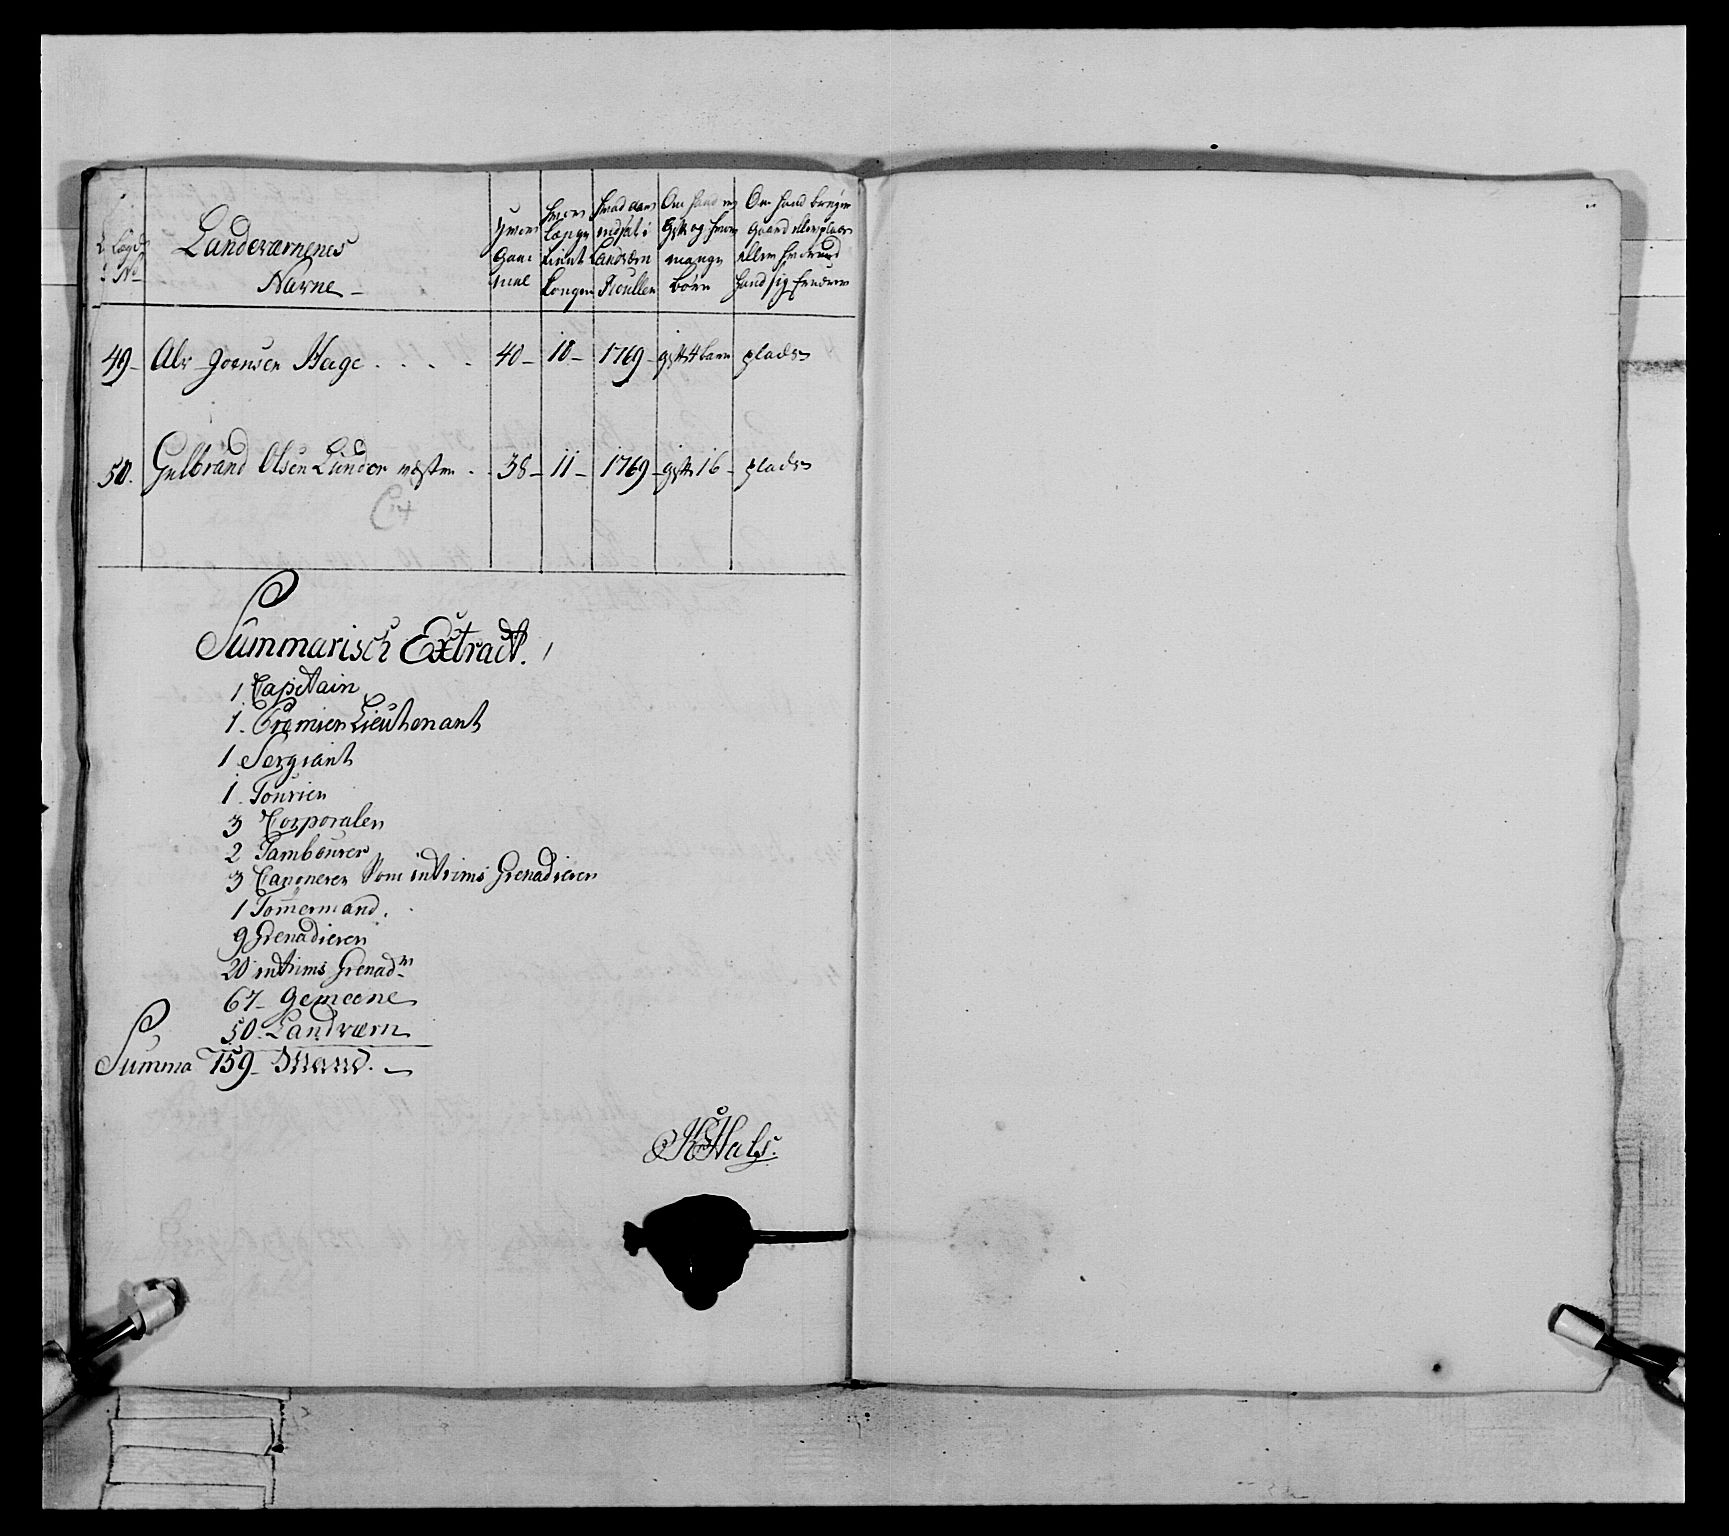 Landeværnenes
Navne
Hvor
Gam-
mel
Hvor
længe
tient
Kongen
Hvad aar
indsat i
Landværn
Roullen
Om Hand er
Gift og hvor
mange
børn
Om Hand bruger
Gaard eller plads
eller hvormed
Hand sig ernærer
49 Alv Joensen Hage . . . . 40 10 1769 gift 4 barn plads
50. Gulbrand Olsen Lunder 38 11 1769 gift 1 6 plads
Summarisch Extract.
1 Capitain
1. Premier Lieutenant
1 Sergiant
1. Fourier
3 Corporaler
2 Tambourer
3 Canonerer Som intrims Grenadierer
1 Tømermand.
9 Grenadierer
20 intrims Grenad
67 Gemeene
50. Landværn
Summa 159 Mand.
Hals.